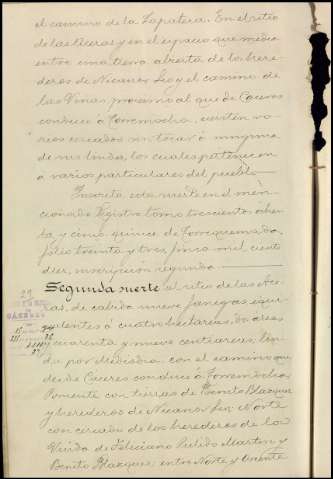 el camino de la Zapatera. En el sitio
de las Heras y en el espacio que media
entre una tierra abierta de los here-
deros de Nicanor y el camino de
las Viñas, proximo al que de Caceres
conduce á Torremocha, existen va-
rios cercados sin tocar á ninguna
de sus lindes, los cuales pertenecen
á varios particulares del pueblo
Inscrita esta suerte en el men-
cionado Registro tomo trescientos ochen-
ta y cinco, quince de Torrequemada,
folio treinta y tres, finca mil ciento
diez, inscripcion segunda.
Segunda suerte al sitio de las He-
ras, de cabida nueve fanegas equi-
valentes á cuatro hectareas, dos areas
cuarenta y nueve centiareas; lin-
da por Mediodia con el camino que
desde Caceres conduce á Torremocha,
Poniente con tierras de Benito Blazquez
y herederos de Nicanor; Norte
con cercado de los herederos de la
Viuda de Feliciano Pulido Martin y
Benito Blazquez; entre Norte y Oriente